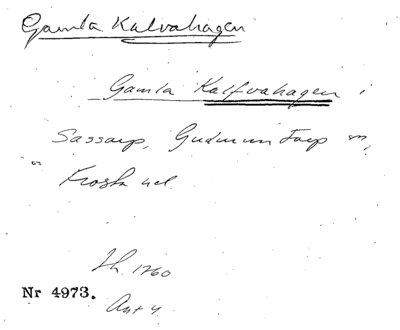 Gamla Kalvahagen
Gamla Kalfvahagen i
Sassarp, Gudmuntorp sn,
Frosta hd.
Jh. 1760
Nr 4973.
Akt 4.